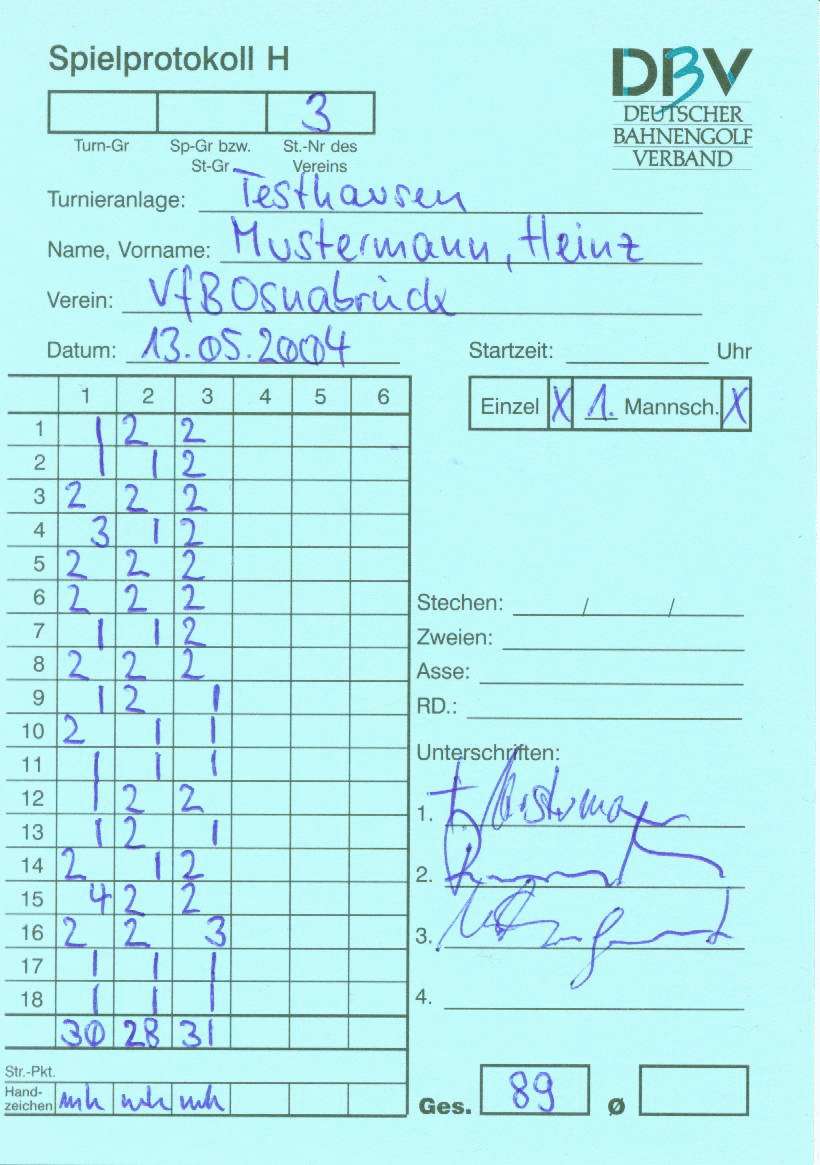 Spielprotokoll H
DBV
DEUTSCHER
BAHNENGOLF
VERBAND
3
Turn-Gr Sp-Gr bzw. St.-Nr des
St-Gr Vereins
Turnieranlage: Testhausen
Name, Vorname: Mustermann, Heinz
Verein: VfB Osnabrück
Datum: 13.05.2004 Startzeit: Uhr
Einzel X 1. Mannsch. X
1 2 3 4 5 6
1 1 2 2
2 1 1 2
3 2 2 2
4 3 1 2
5 2 2 2
6 2 2 2
7 1 1 2
8 2 2 2
9 1 2 1
10 2 1 1
11 1 1 1
12 1 2 2
13 1 2 1
14 2 1 2
15 4 2 2
16 2 2 3
17 1 1 1
18 1 1 1
30 28 31
Str.-Pkt.
Hand-
zeichen mh mh mh
Stechen: / /
Zweien:
Asse:
RD.:
Unterschriften:
1.
2.
3.
4.
Ges. 89 ø